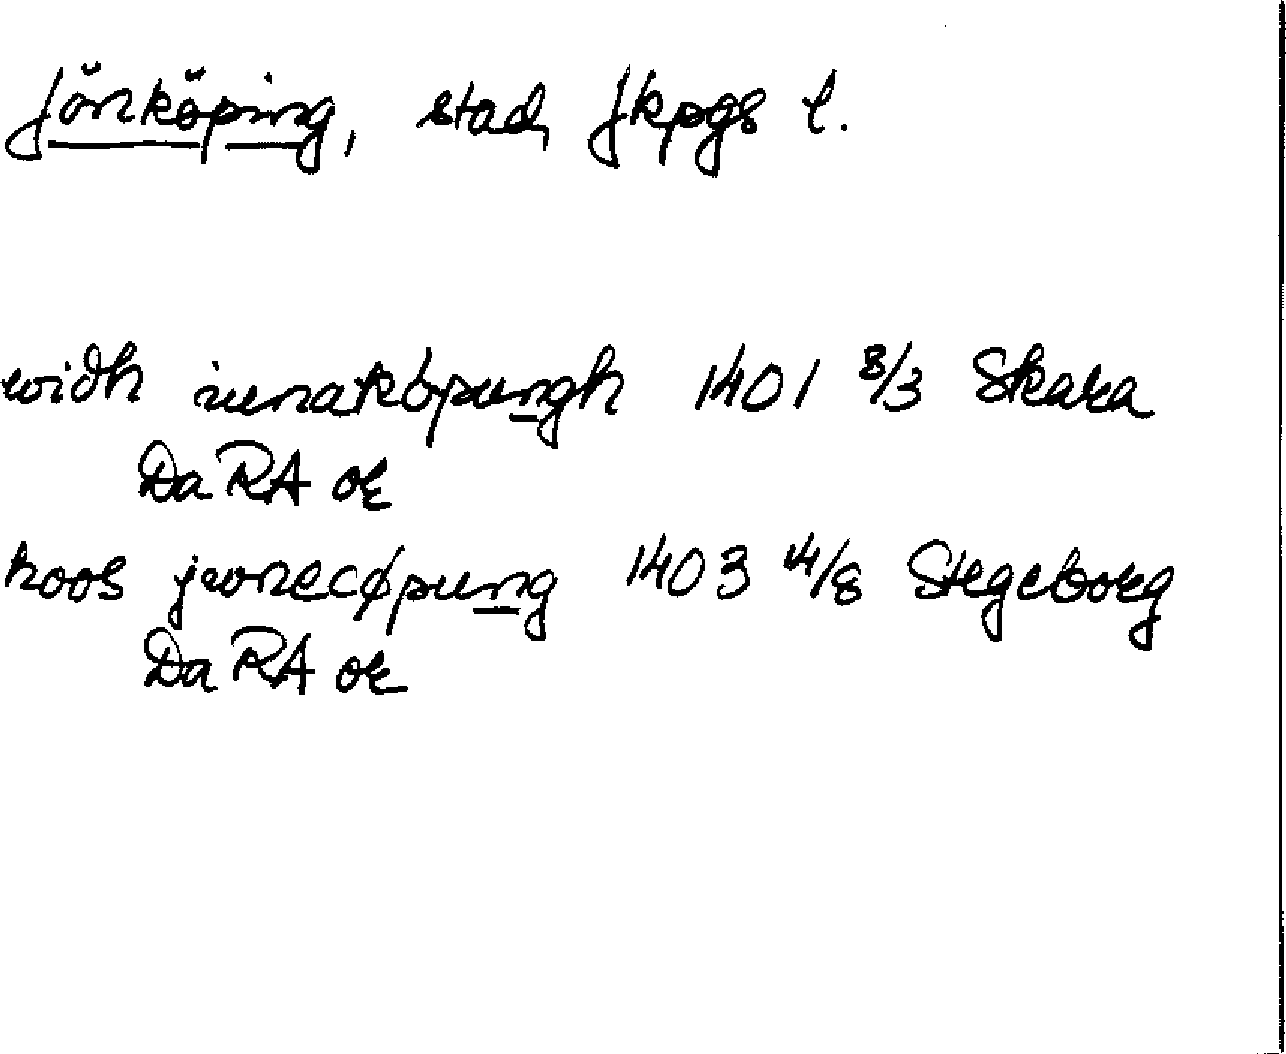 Jönköping, stad, Jkpgs l.
widh iunaköpungh 1401 8/3 Skara
Da RA or
hoos jwnecøpung 1403 4/8 Stegeborg
Da RA or